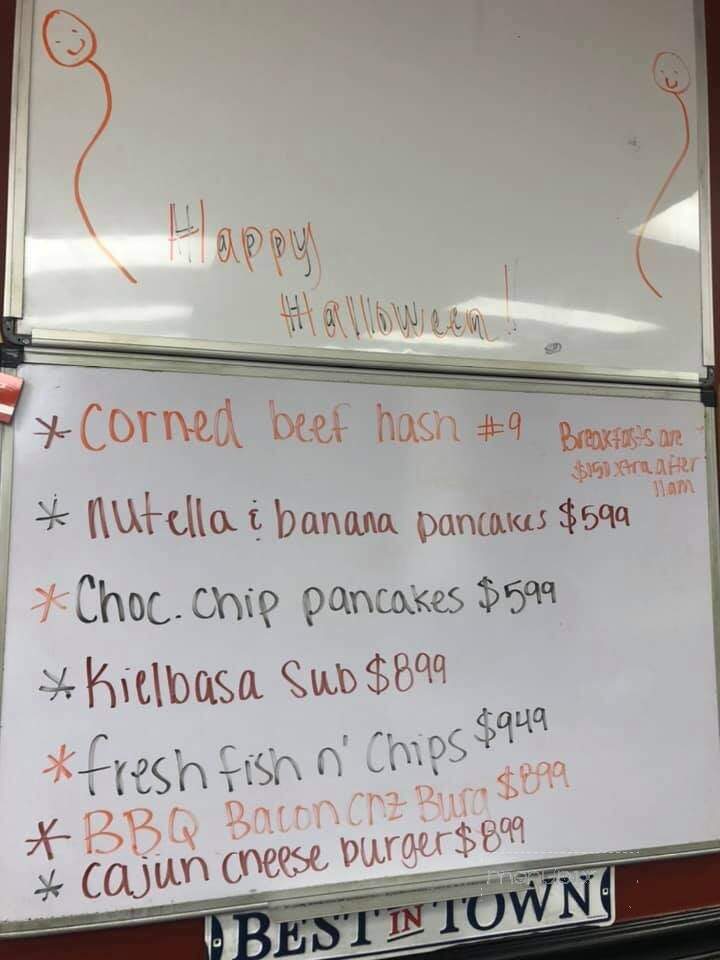 Happy
Halloween!
* Corned beef hash #9
Breakfasts are
$150 xtra after
11am
* nutella & banana pancakes $599
* Choc. chip pancakes $599
* Kielbasa Sub $899
* fresh fish n' Chips $949
* BBQ Bacon Chz Burg $899
* cajun cheese burger $899
BEST IN TOWN